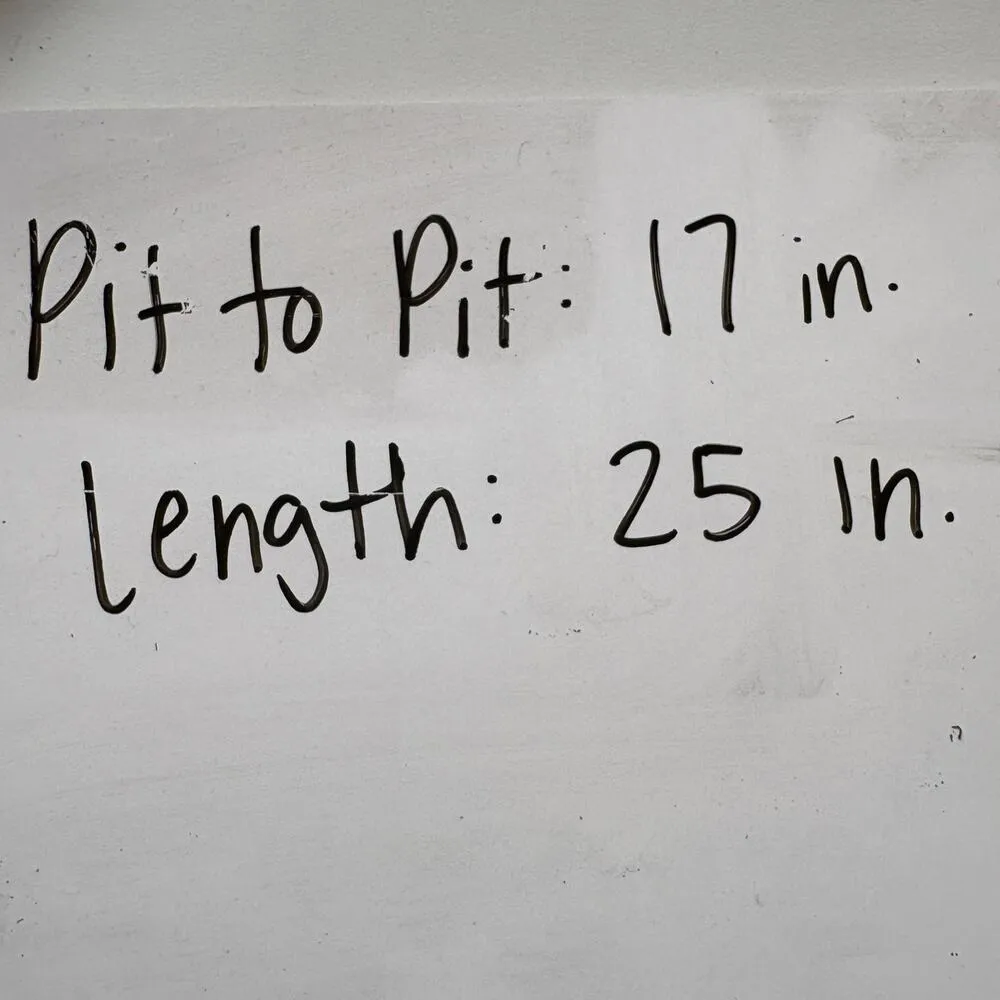 Pit to Pit: 17 in.
Length: 25 in.